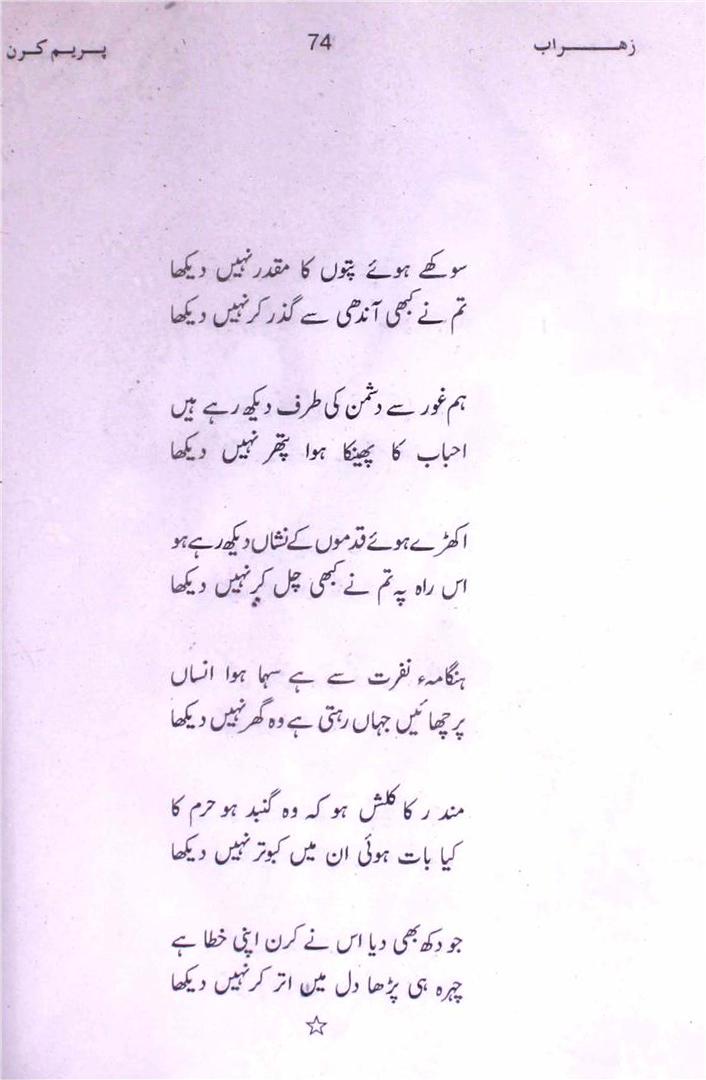 زهراب 74 پریم کرن
سوکھے ہوئے پتوں کا مقدر نہیں دیکھا
تم نے کبھی آندھی سے گذر کر نہیں دیکھا
ہم غور سے دشمن کی طرف دیکھ رہے ہیں
احباب کا پھینکا ہوا پتھر نہیں دیکھا
اکھڑے ہوئے قدموں کے نشاں دیکھ رہے ہو
اس راہ پہ تم نے کبھی چل کر نہیں دیکھا
ہنگامہء نفرت سے ہے سہما ہوا انساں
پرچھائیں جہاں رہتی ہے وہ گھر نہیں دیکھا
مندر کا کلش ہو کہ وہ گنبد ہو حرم کا
کیا بات ہوئی ان میں کبوتر نہیں دیکھا
جو دکھ بھی دیا اس نے کرن اپنی خطا ہے
چہرہ ہی پڑھا دل میں اتر کر نہیں دیکھا
☆